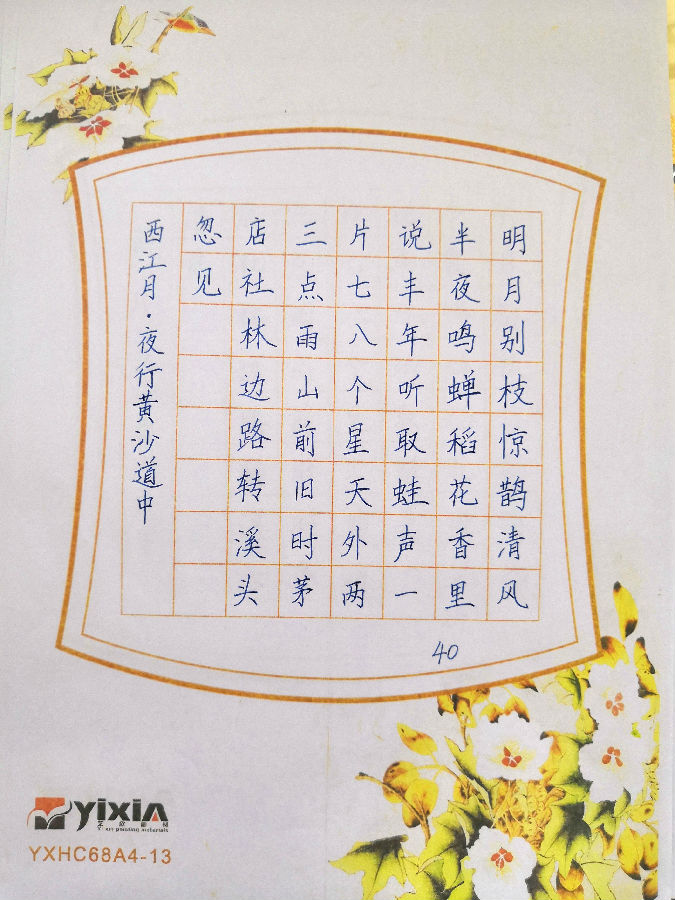 明月别枝惊鹊清风
半夜鸣蝉稻花香里
说丰年听取蛙声一
片七八个星天外两
三点雨山前旧时茅
店社林边路转溪头
忽见
西江月·夜行黄沙道中
40
yixin
YXHC68A4-13